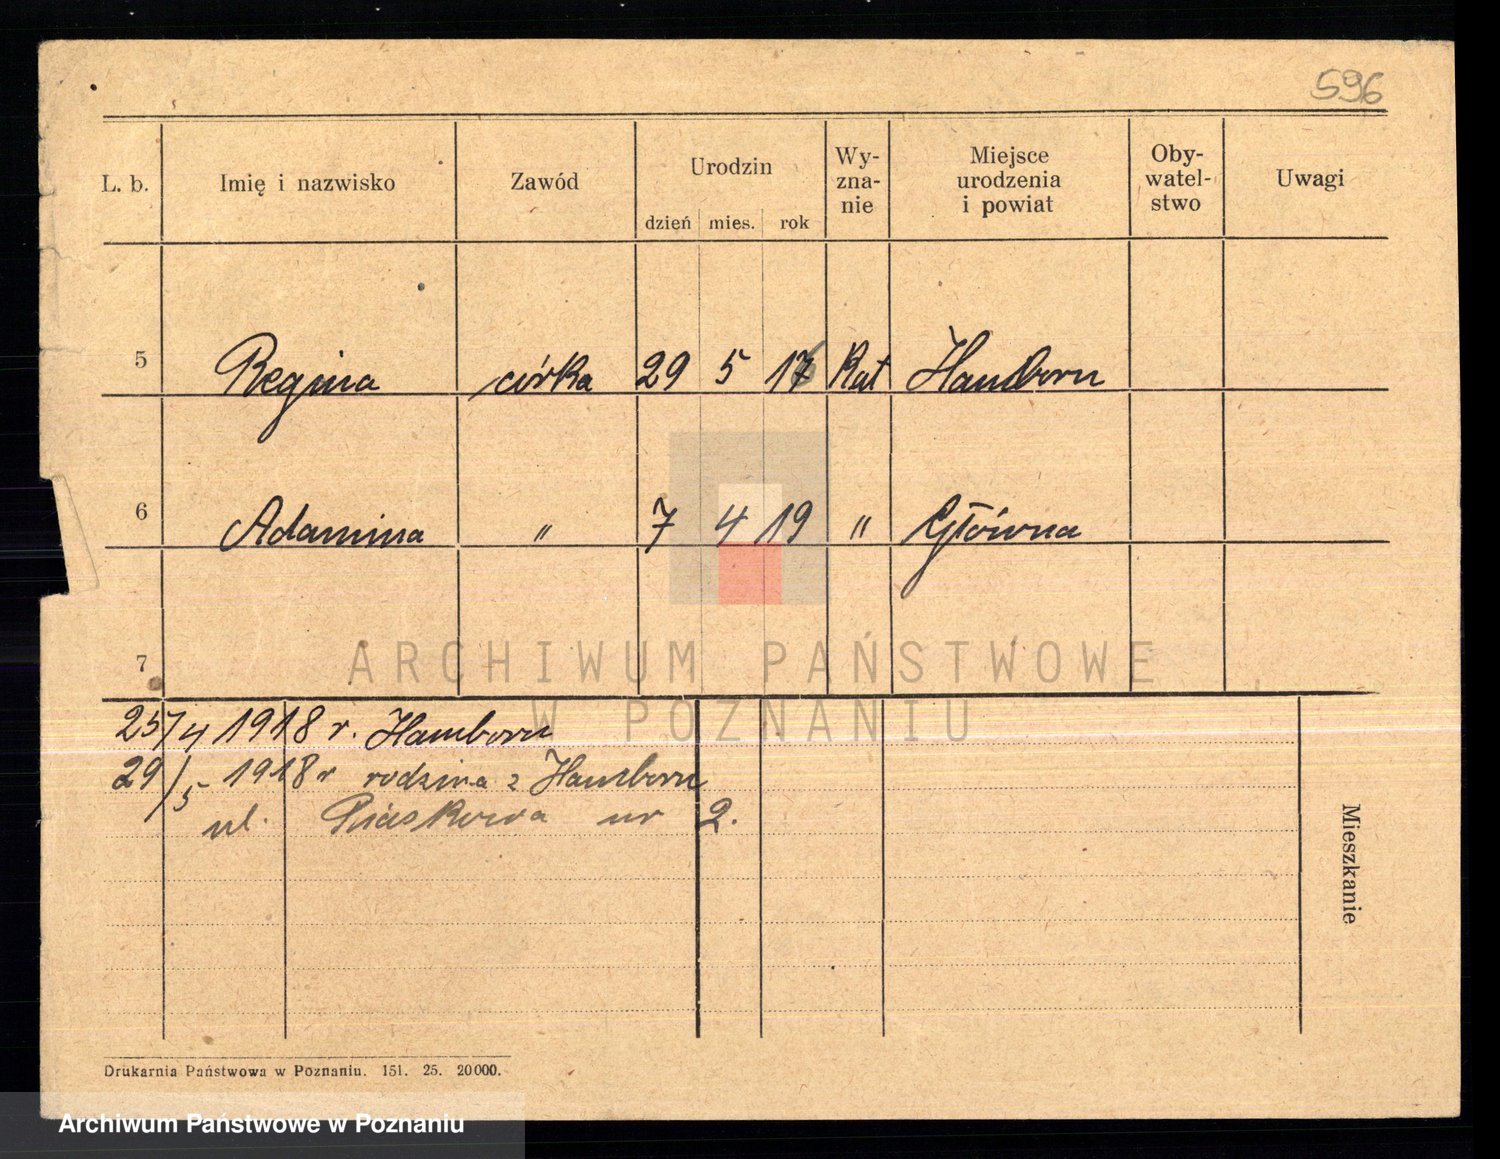 596
L. b. Imię i nazwisko Zawód Urodzin dzień mies. rok Wy-zna-nie Miejsce urodzenia i powiat Oby-watel-stwo Uwagi
5 Regina córka 29 5 Kat Hamborn
6 Adamina " 7 4 19 " Główna
7
ARCHIWUM PAŃSTWOWE
W POZNANIU
25/4 1918 r. Hamborn
29/5 1918 r rodzina z Hamborn
ul. Piaskowa nr 2.
Mieszkanie
Drukarnia Państwowa w Poznaniu. 151. 25. 20000.
Archiwum Państwowe w Poznaniu